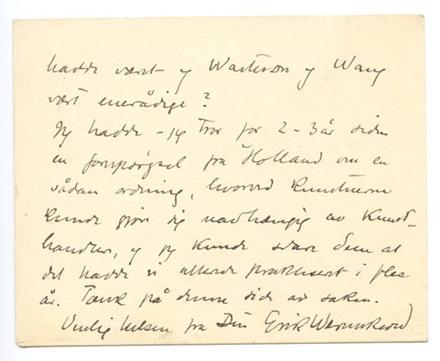 hadde været – og Wartesen og Wang
vært enerådige?
Jeg hadde – jeg tror for 2–3 år siden
en forespørgsel fra Holland om en
sådan ordning, hvorved kunstnerne
kunde gjøre sig uavhængig av Kunst-
handlen, og jeg kunde svare dem at
det hadde vi allerede praktisert i flere
år. Tænk på denne side av saken.
Venlig hilsen fra Din Erik Werenskiold